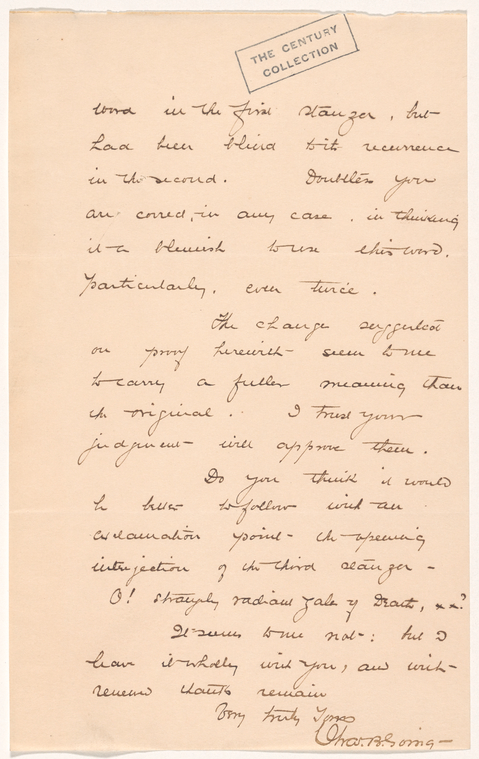 THE CENTURY
COLLECTION
word in the first stanza, but
had been blind to its recurrence
in the second. Doubtless you
are correct, in any case, in thinking
it a blemish to use this word,
particularly, even twice.
The change suggested
on proof herewith seem to me
to carry a fuller meaning than
the original. I trust your
judgment will approve them.
Do you think it would
be better to follow with an
exclamation point the opening
interjection of the third stanza -
O! strangely radiant gate of Death, xx?
It seems to me not: but I
leave it wholly with you, and with
renewed thanks remain
Very truly Yours
Chas. B. Going